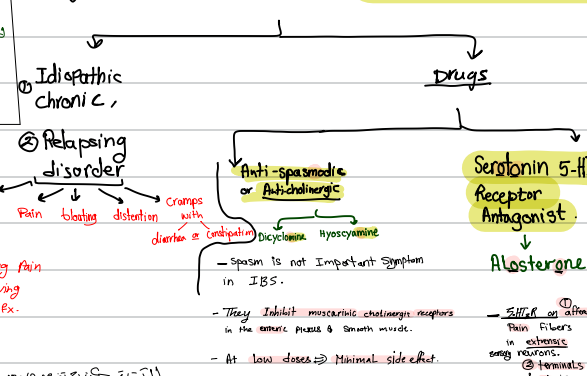 ① Idiopathic
chronic,
② Relapsing
disorder
Pain
bloating
distention
Cramps
with
diarrhea or Constipation
Pain
Rx.
Drugs
Anti-spasmodic
or Anti-cholinergic
Dicyclomine
Hyoscyamine
- Spasm is not Important Symptom
in IBS.
- They Inhibit muscarinic cholinergic receptors
in the enteric plexus & Smooth muscle.
- At low doses ⇒ Minimal side effect.
Serotonin 5-H
Receptor
Antagonist.
Alosterone
- 5-HT3R on ①
Pain Fibers
in extrinsic
sensory neurons.
② terminals